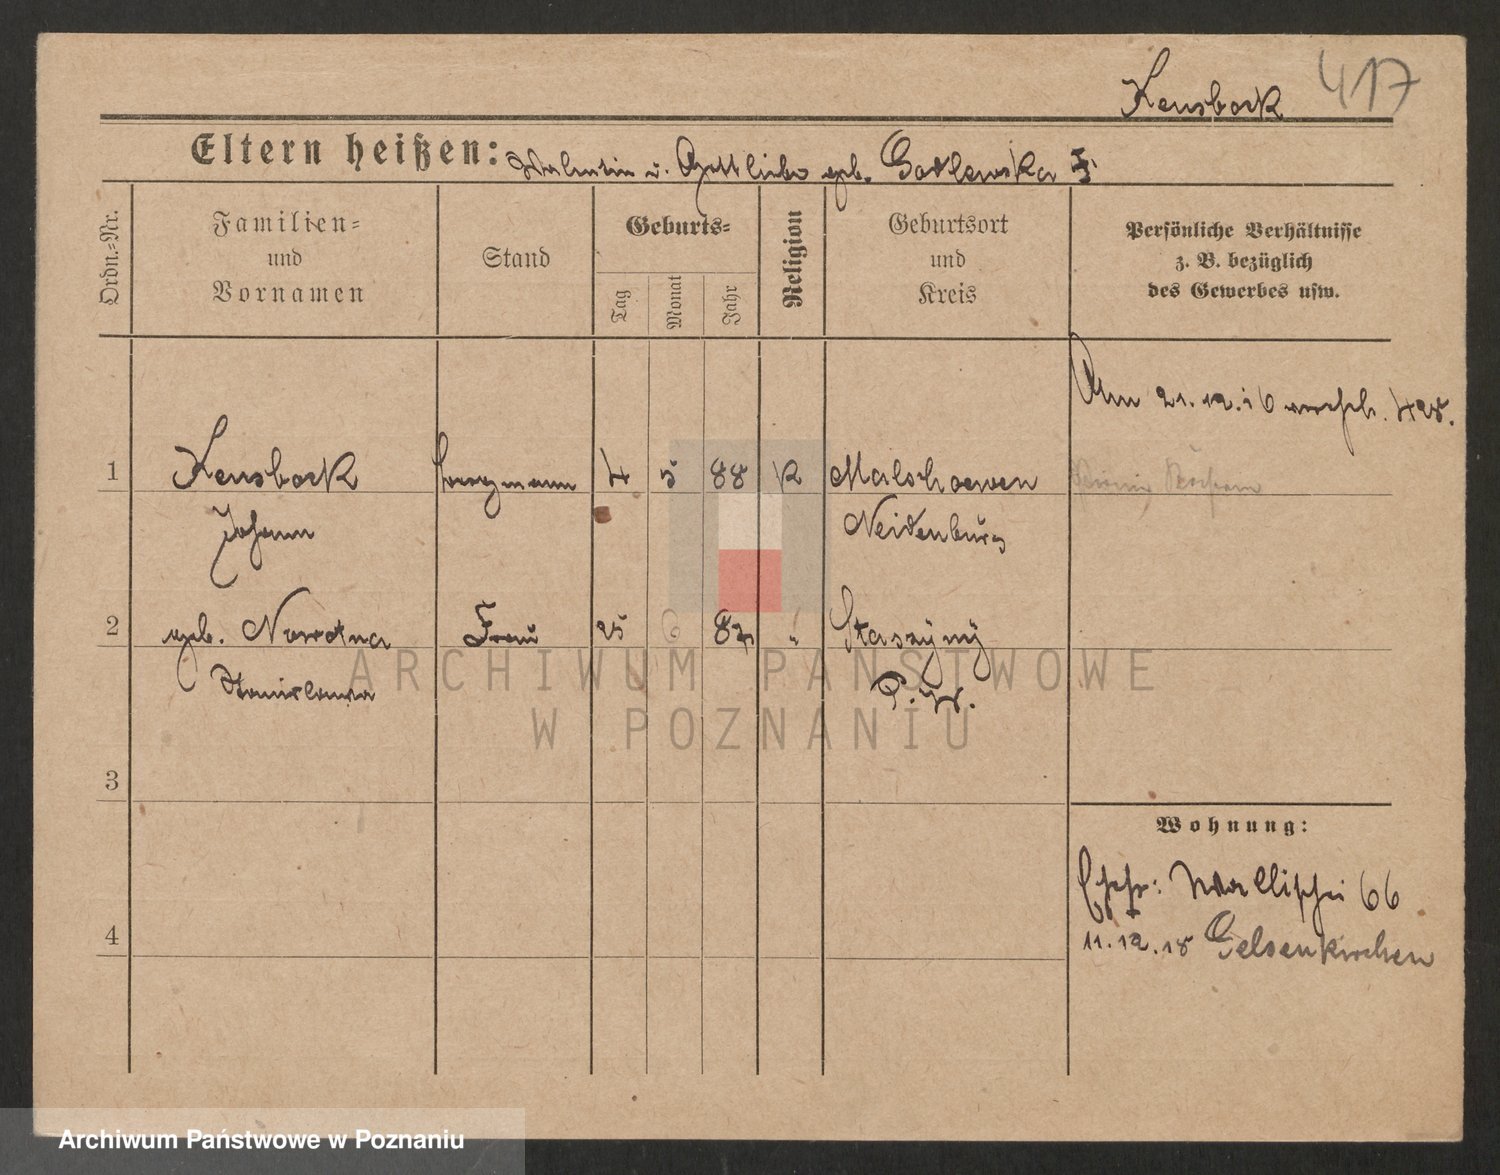 Kensbock 417
Eltern heißen: Valentin u. Gottliebe geb. Gotlewska
Ordn.-Nr.
Familien-
und
Vornamen
Stand
Geburts-
Tag
Monat
Jahr
Religion
Geburtsort
und
Kreis
Persönliche Verhältnisse
z. B. bezüglich
des Gewerbes usw.
Am 21.12.16
1 Kensbock Bergmann 4 5 88 K Malschoewen
Johann Neidenburg
2 geb. Nawotna Frau 25 6 87 " Staszymy
Stanislawa P.W.
3
4
Wohnung:
Ehefr: Wallischei 66
11.12.18 Gelsenkirchen
ARCHIWUM PAŃSTWOWE
W POZNANIU
Archiwum Państwowe w Poznaniu